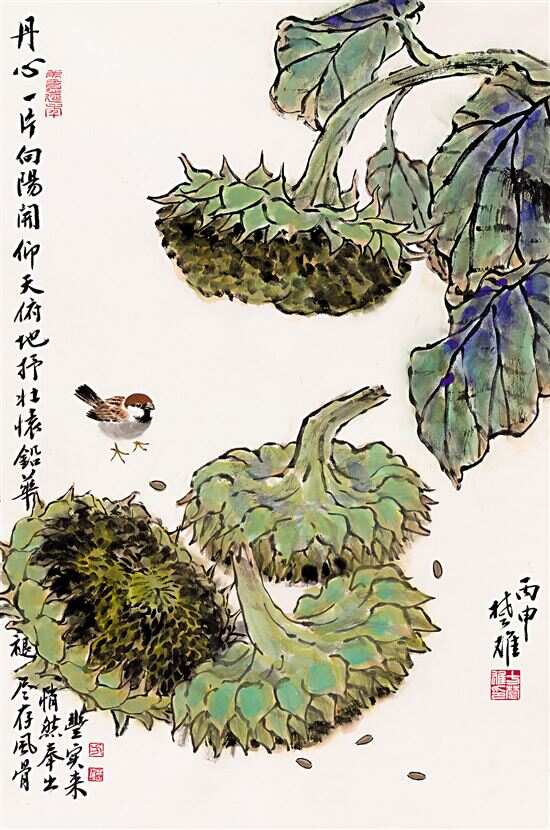 丹心一片向陽開仰天俯地抒壯懷鉛華褪尽存風骨
悄然奉出
豐实来
丙申
楚雄